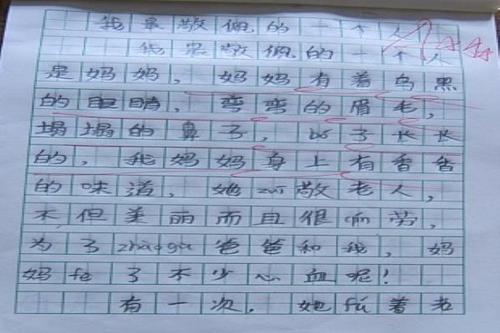 我最敬佩的一个人
我最敬佩的一个人
是妈妈,妈妈有着乌黑
的眼睛,弯弯的眉毛,
塌塌的鼻子,子长长
的,我妈妈身上有香香
的味道,她zun敬老人,
不但美丽而且很劳,
为了zhaogu爸爸和我,妈
妈fe了不少心血呢!
有一次,她fú着老